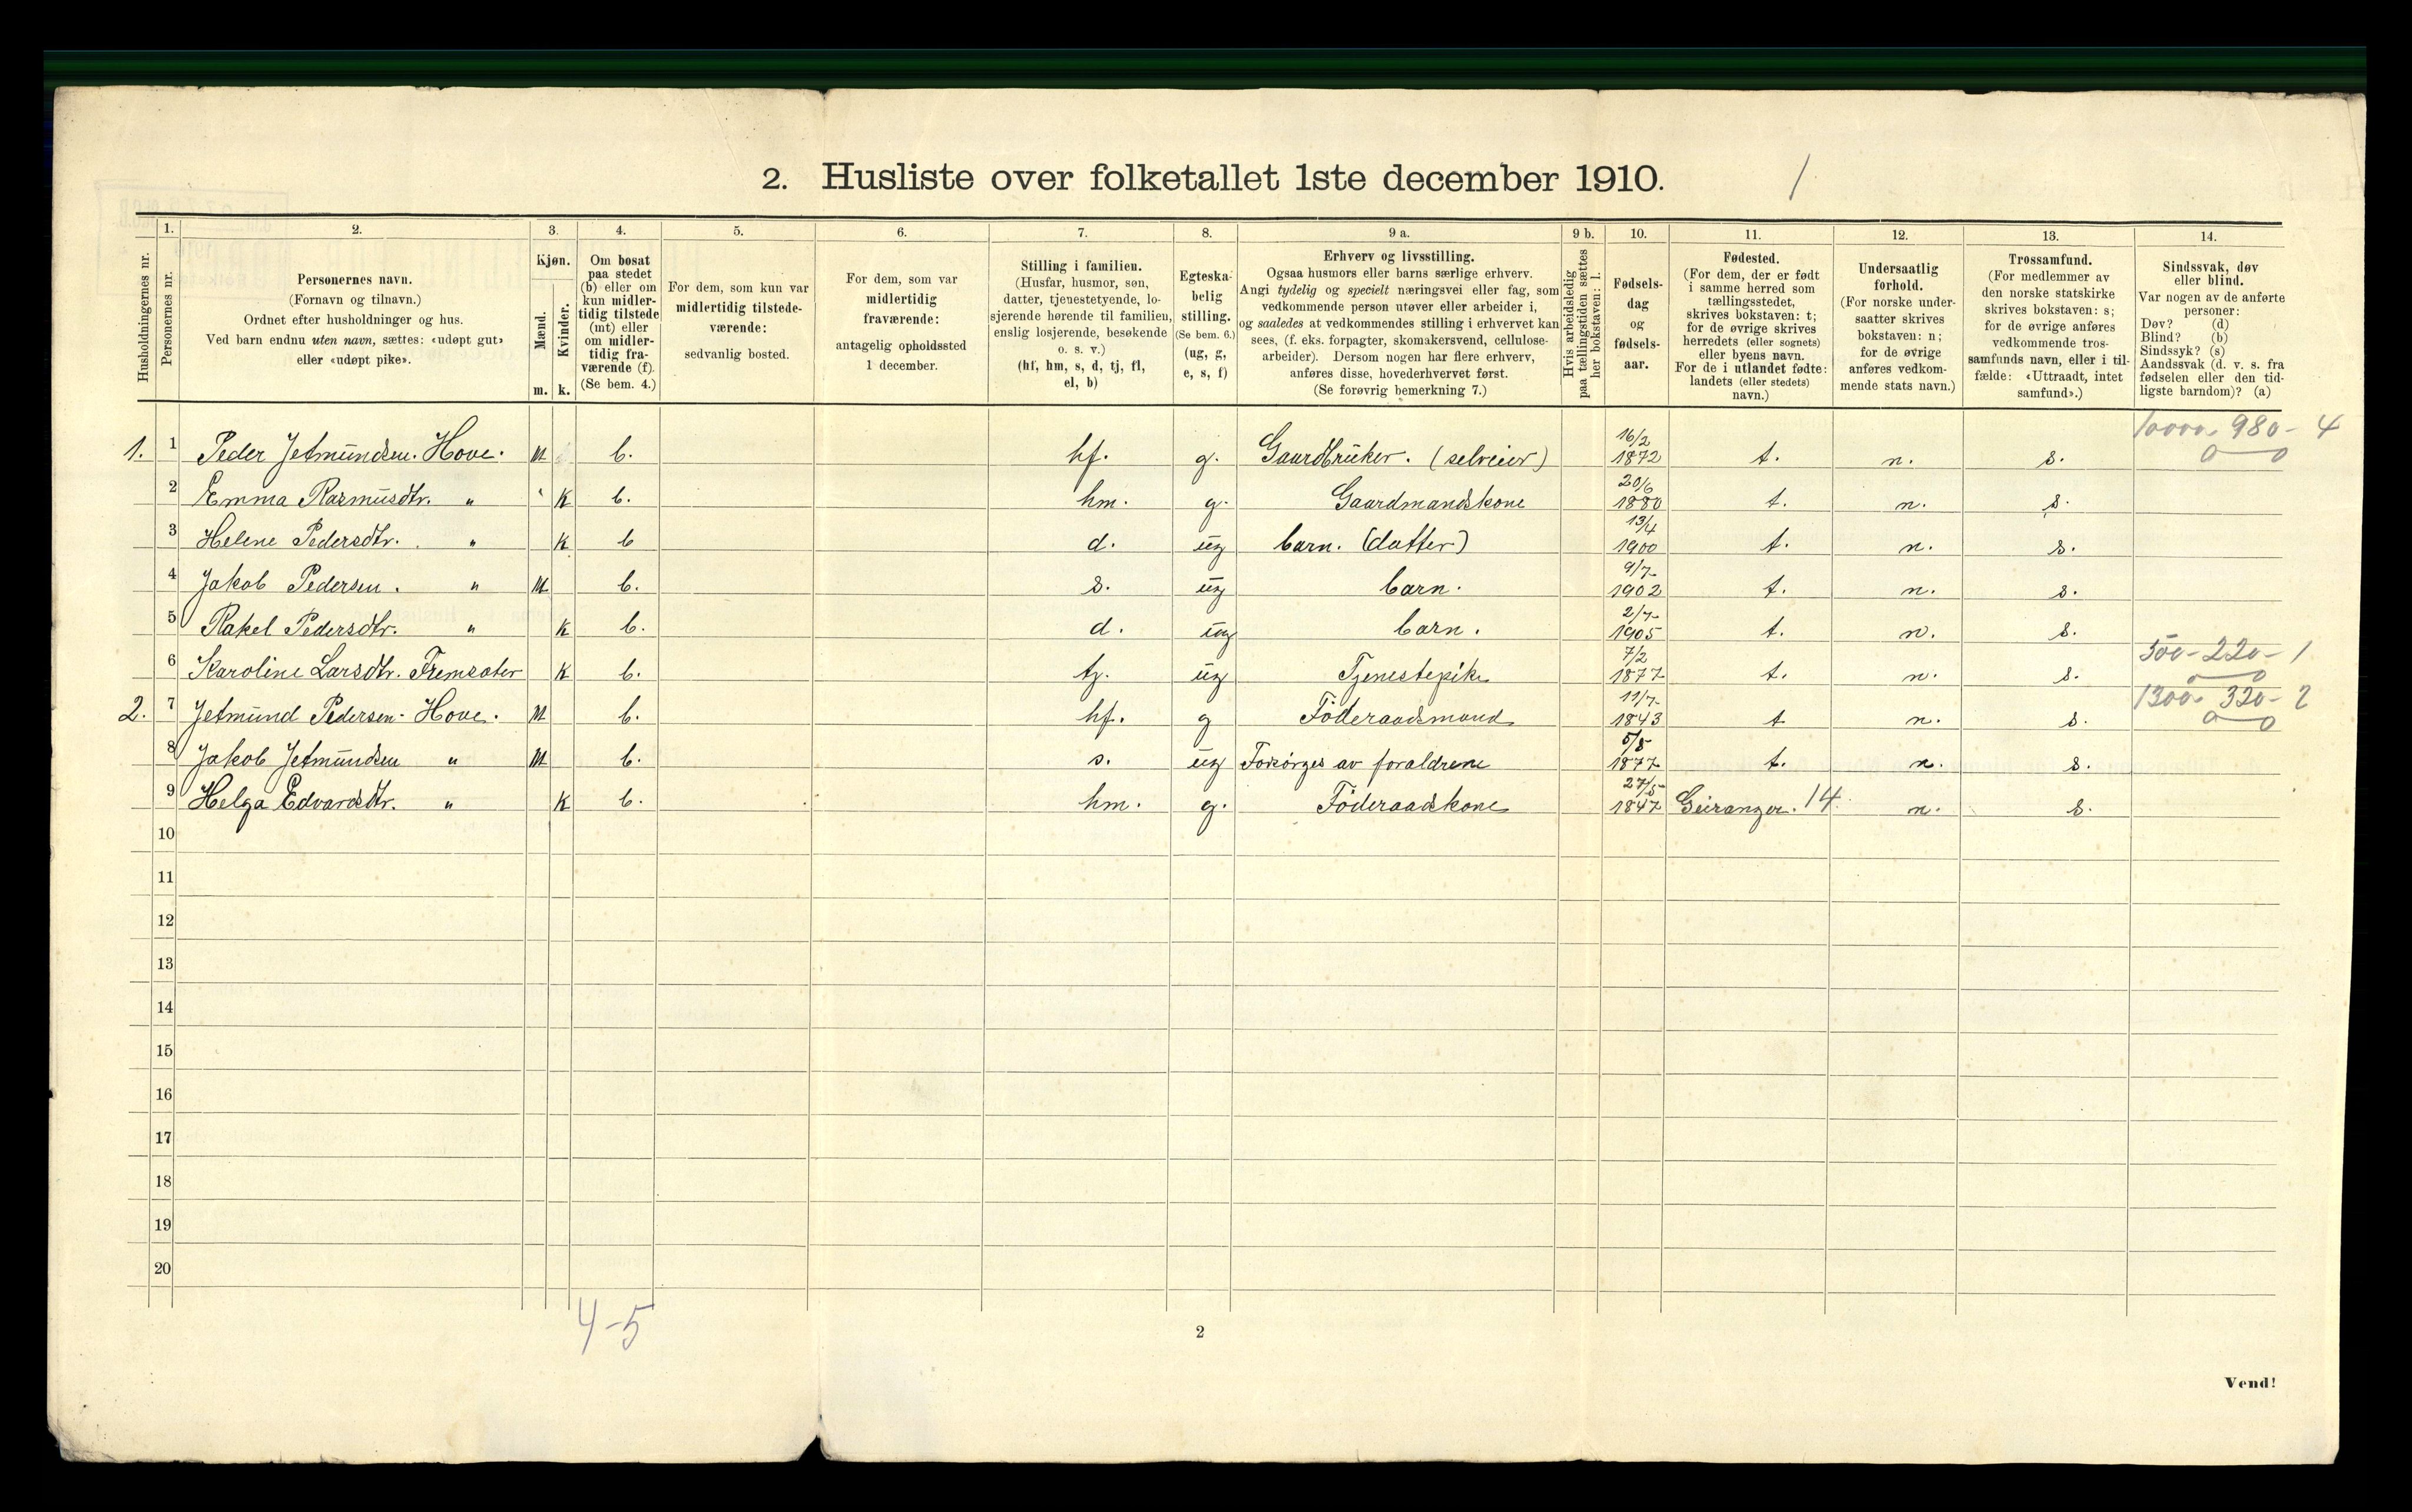 2. Husliste over folketallet 1ste december 1910. /
Husholdningernes nr.
1.
Personernes nr.
2.
Personernes navn.
(Fornavn og tilnavn.)
Ordnet efter husholdninger og hus.
Ved barn endnu uten navn, sættes: «udøpt gut»
eller «udøpt pike».
3.
Kjøn.
Mænd.
m.
Kvinder.
k.
4.
Om bosat
paa stedet
(b) eller om
kun midler-
tidig tilstede
(mt) eller
om midler-
tidig fra-
værende (f).
(Se bem. 4.)
5.
For dem, som kun var
midlertidig tilstede-
værende:
sedvanlig bosted.
6.
For dem, som var
midlertidig
fraværende:
antagelig opholdssted
1 december.
7.
Stilling i familien.
(Husfar, husmor, søn,
datter, tjenestetyende, lo-
sjerende hørende til familien,
enslig losjerende, besøkende
o. s. v.)
(hf, hm, s, d, tj, fl,
el, b)
8.
Egteska-
belig
stilling.
(Se bem. 6.)
(ug, g,
e, s, f)
9 a.
Erhverv og livsstilling.
Ogsaa husmors eller barns særlige erhverv.
Angi tydelig og specielt næringsvei eller fag, som
vedkommende person utøver eller arbeider i,
og saaledes at vedkommendes stilling i erhvervet kan
sees, (f. eks. forpagter, skomakersvend, cellulose-
arbeider). Dersom nogen har flere erhverv,
anføres disse, hovederhvervet først.
(Se forøvrig bemerkning 7.)
9 b.
Hvis arbeidsledig
paa tællingstiden sættes
her bokstaven: l.
10.
Fødsels-
dag
og
fødsels-
aar.
11.
Fødested.
(For dem, der er født
i samme herred som
tællingsstedet,
skrives bokstaven: t;
for de øvrige skrives
herredets (eller sognets)
eller byens navn.
For de i utlandet fødte:
landets (eller stedets)
navn.)
12.
Undersaatlig
forhold.
(For norske under-
saatter skrives
bokstaven: n;
for de øvrige
anføres vedkom-
mende stats navn.)
13.
Trossamfund.
(For medlemmer av
den norske statskirke
skrives bokstaven: s;
for de øvrige anføres
vedkommende tros-
samfunds navn, eller i til-
fælde: «Uttraadt, intet
samfund».)
14.
Sindssvak, døv
eller blind.
Var nogen av de anførte
personer:
Døv? (d)
Blind? (b)
Sindssyk? (s)
Aandssvak (d. v. s. fra
fødselen eller den tid-
ligste barndom)? (a)
1. 1 Peder Jetmundsen. Hove. M b. hf. g. Gaardbruker. (selveier) 16/2 1872 t. n. s. 10000 - 980 - 4
0 0
2 Emma Rasmusdtr. " K b. hm. g. Gaardmandskone 20/6 1880 t. n. s.
3 Helene Pedersdtr. " K b d. ug barn. (datter) 13/4 1900 t. n. s.
4 Jakob Pedersen. " M b. s. ug barn. 9/7 1902 t. n. s.
5 Rakel Pedersdtr. " K b. d. ug barn. 2/7 1905 t. n. s.
6 Karoline Larsdtr. Fremsæter K b. tj. ug Tjenestepike 7/2 1877 t. n. s. 500 - 220 - 1
0 0
2. 7 Jetmund Pedersen. Hove. M b. hf. g Föderaadsmand 11/7 1843 t n. s. 1300 - 320 - 2
0 0
8 Jakob Jetmundsen " M b. s. ug Forsörges av foraldrene 5/8 1877 t. n. s.
9 Helga Edvardsdtr. " K b. hm. g. Föderaadskone 27/5 1847 Geiranger. 14 n. s.
10
11
12
13
14
15
16
17
18
19
20
4-5
2
Vend!